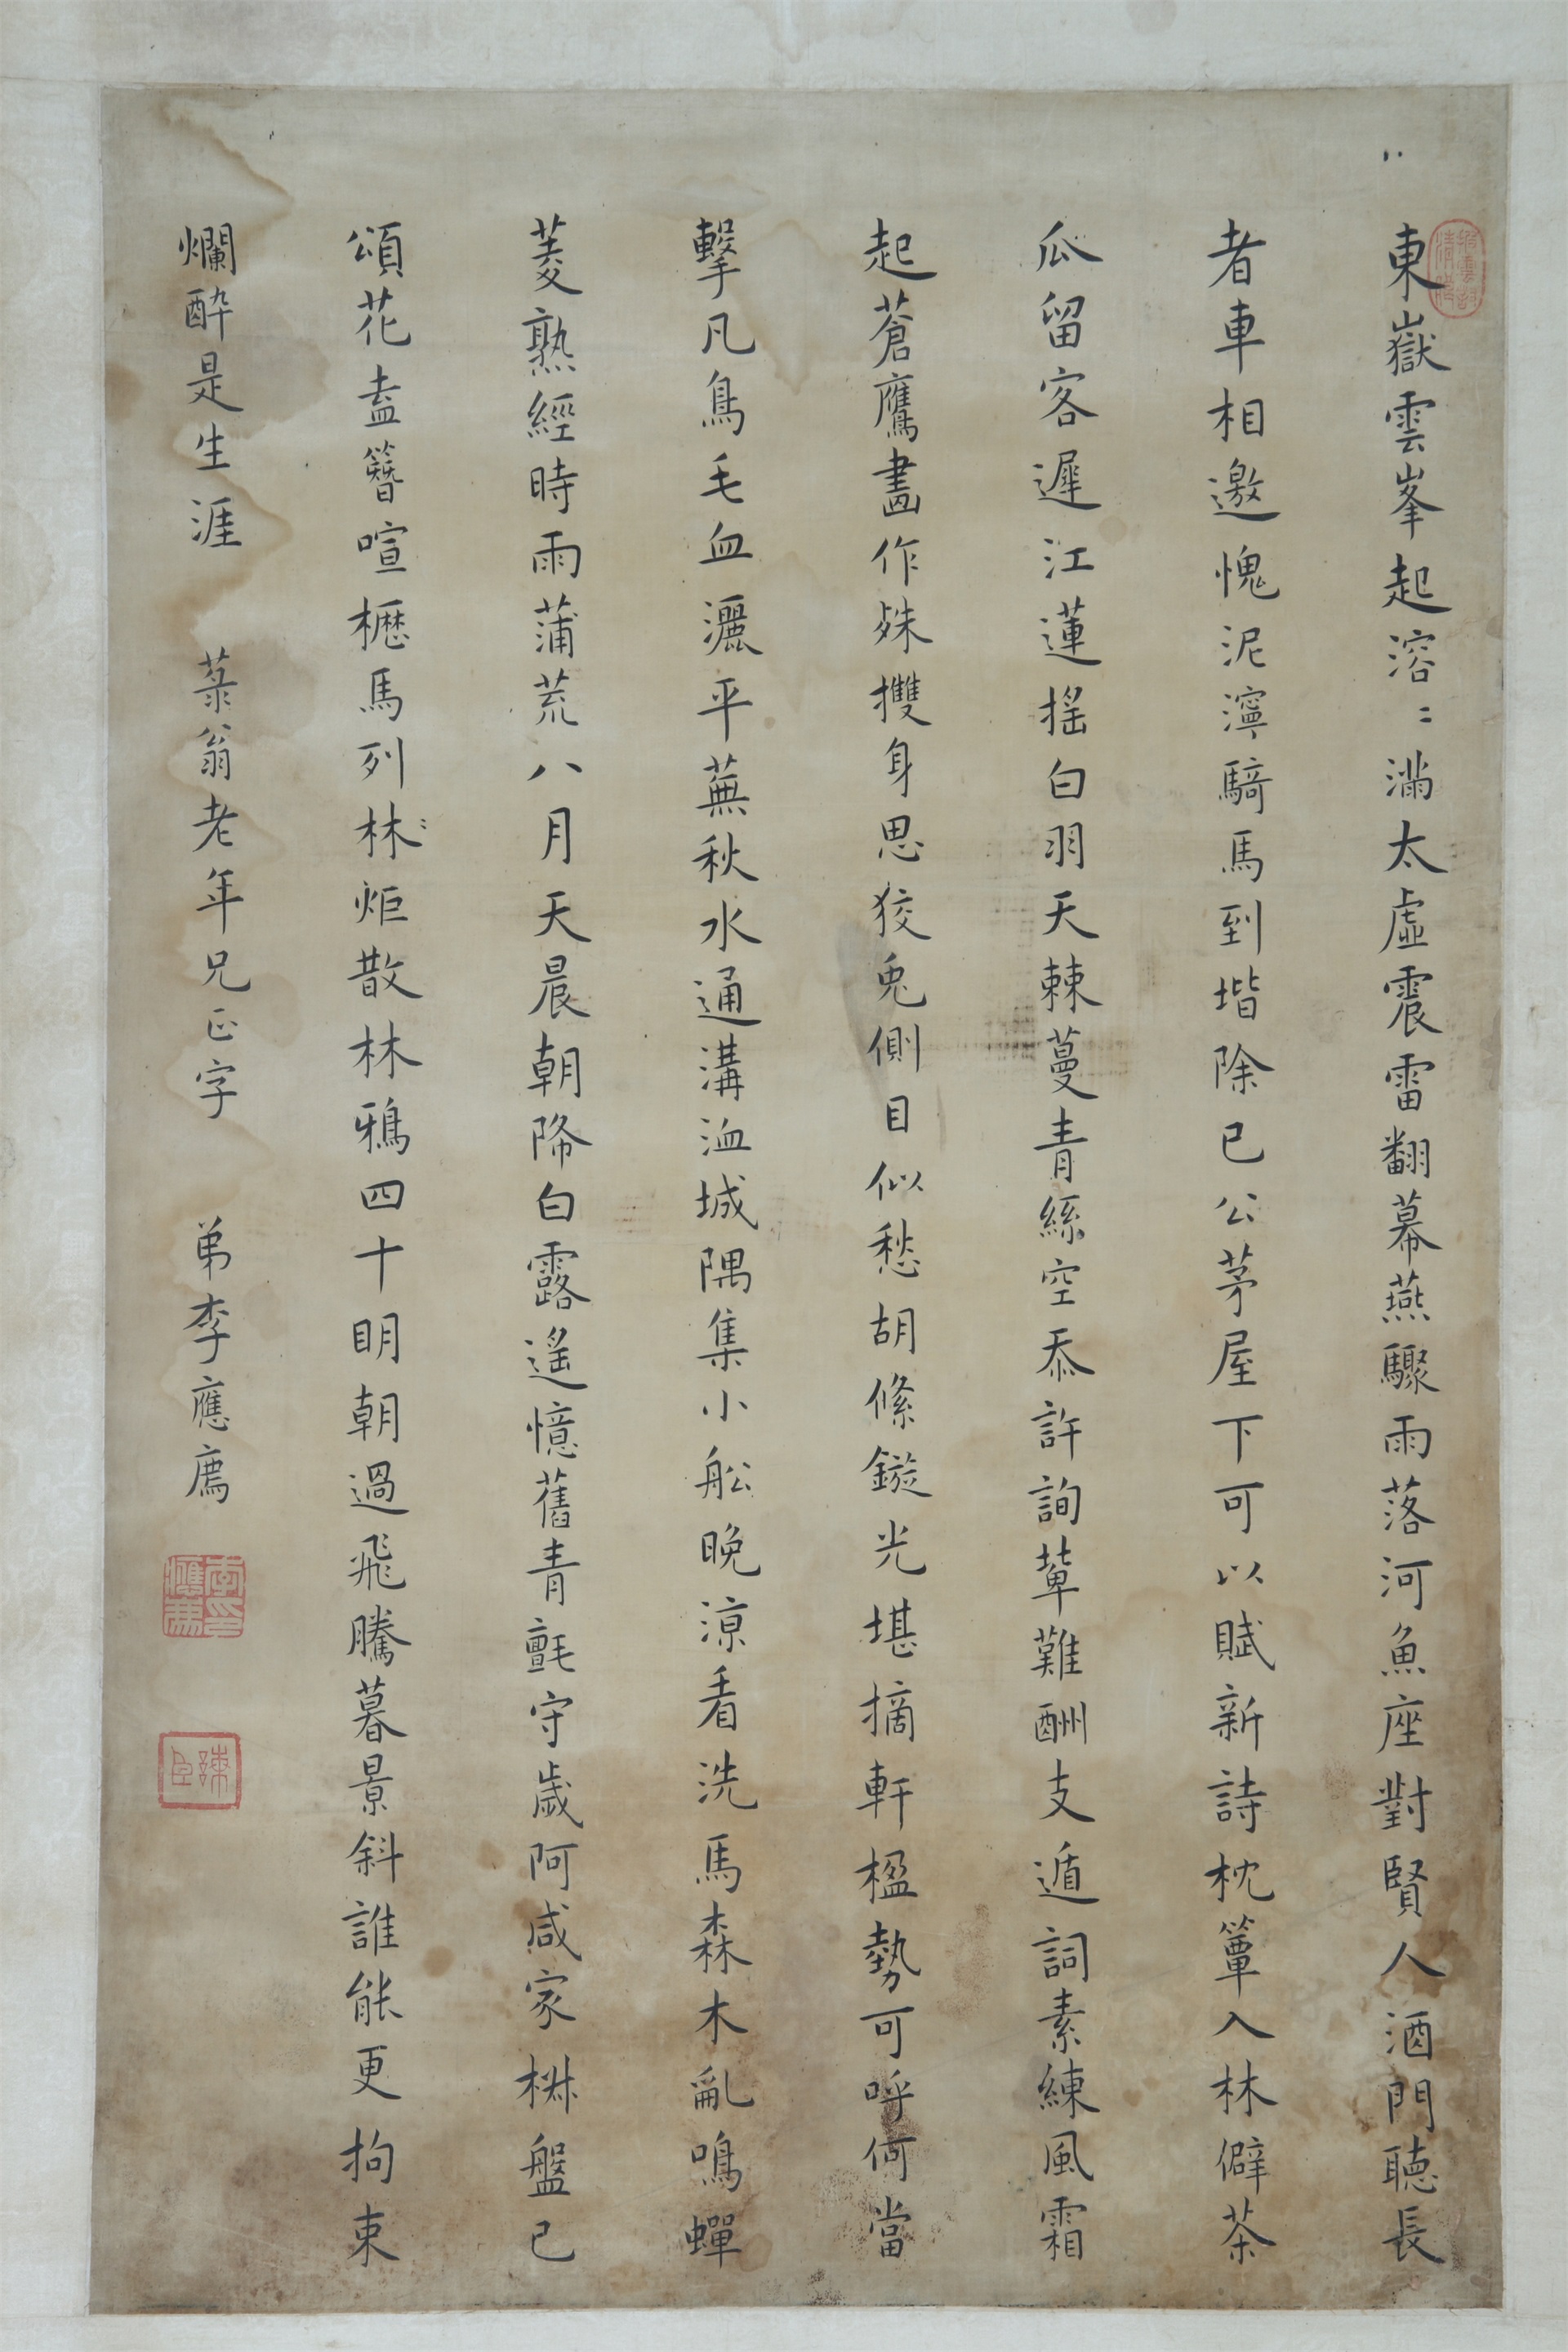 東嶽雲峯起溶〻滿太虛震雷翻幕燕驟雨落河魚座對賢人酒門聽長
者車相邀愧泥濘騎馬到堦除已公茅屋下可以賦新詩枕簟入林僻茶
瓜留客遲江蓮搖白羽天棘蔓青絲空忝許詢輩難酬支遁詞素練風霜
起蒼鷹畫作殊㩳身思狡兔側目似愁胡絛鏇光堪摘軒楹勢可呼何當
擊凡鳥毛血灑平蕪秋水通溝洫城隅集小舩晚涼看洗馬森木亂鳴蟬
菱熟經時雨蒲荒八月天晨朝降白露遙憶舊青氈守歲阿咸家椒盤已
頌花盍簪喧櫪馬列林〻炬散林鴉四十明朝過飛騰暮景斜誰能更拘束
爛醉是生涯 菉翁老年兄正字 弟李應廌
李應廌印
諫臣